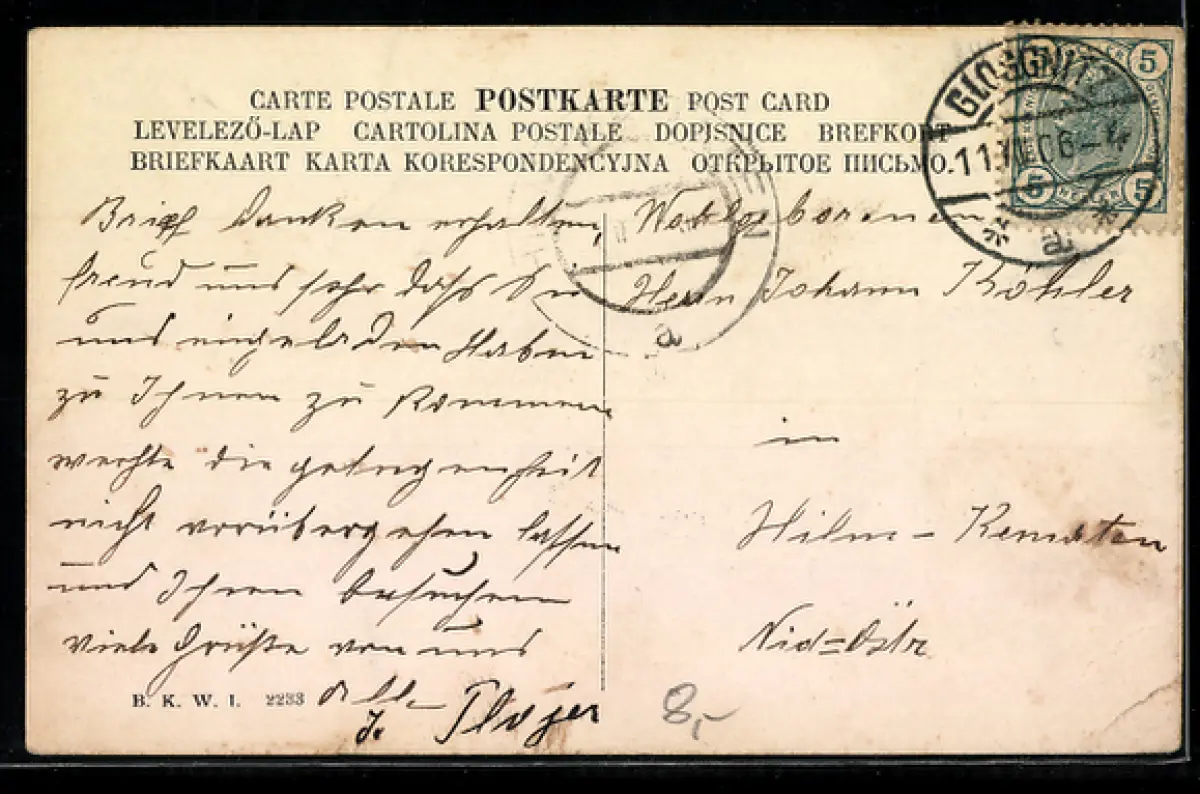 CARTE POSTALE POSTKARTE POST CARD
LEVELEZŐ-LAP CARTOLINA POSTALE DOPISNICE BREFKORT
BRIEFKAART KARTA KORESPONDENCYJNA ОТКРЫТОЕ ПИСЬМО.
5 5
5 5
GLOGGNITZ
11 06-4
* a *
a
Brief danken erhalten,
freud uns sehr daß Sie
uns eingeladen Haben
zu Ihnen zu kommen
werde die gelegenheit
nicht vorübergehen lassen
und Ihnen besuchen
viele Grüße von uns
alle
J. Plojer
Wohlgeborenen
Herrn Johann Köhler
in
Hilm-Kematen
Nid=Östr
B. K. W. I. 2233
8,-